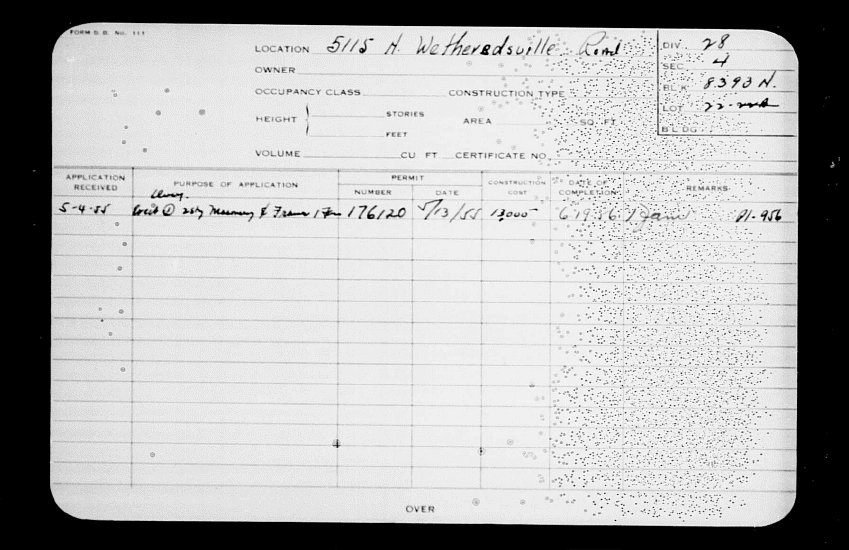 FORM B. B. No. 111
LOCATION 5115 N. Wetheredsville Road
DIV. 28
SEC. 4
OWNER
BLK. 8393 N.
OCCUPANCY CLASS CONSTRUCTION TYPE
LOT 22-
HEIGHT STORIES AREA SQ. FT.
FEET
BLDG.
VOLUME CU FT CERTIFICATE NO.
APPLICATION RECEIVED PURPOSE OF APPLICATION PERMIT NUMBER DATE CONSTRUCTION COST DATE OF COMPLETION REMARKS
5-4-55 Erect ① 2sty Masonry & Frame 1 Fam 176120 5/13/55 13,000 6 19 56 P1-956
OVER